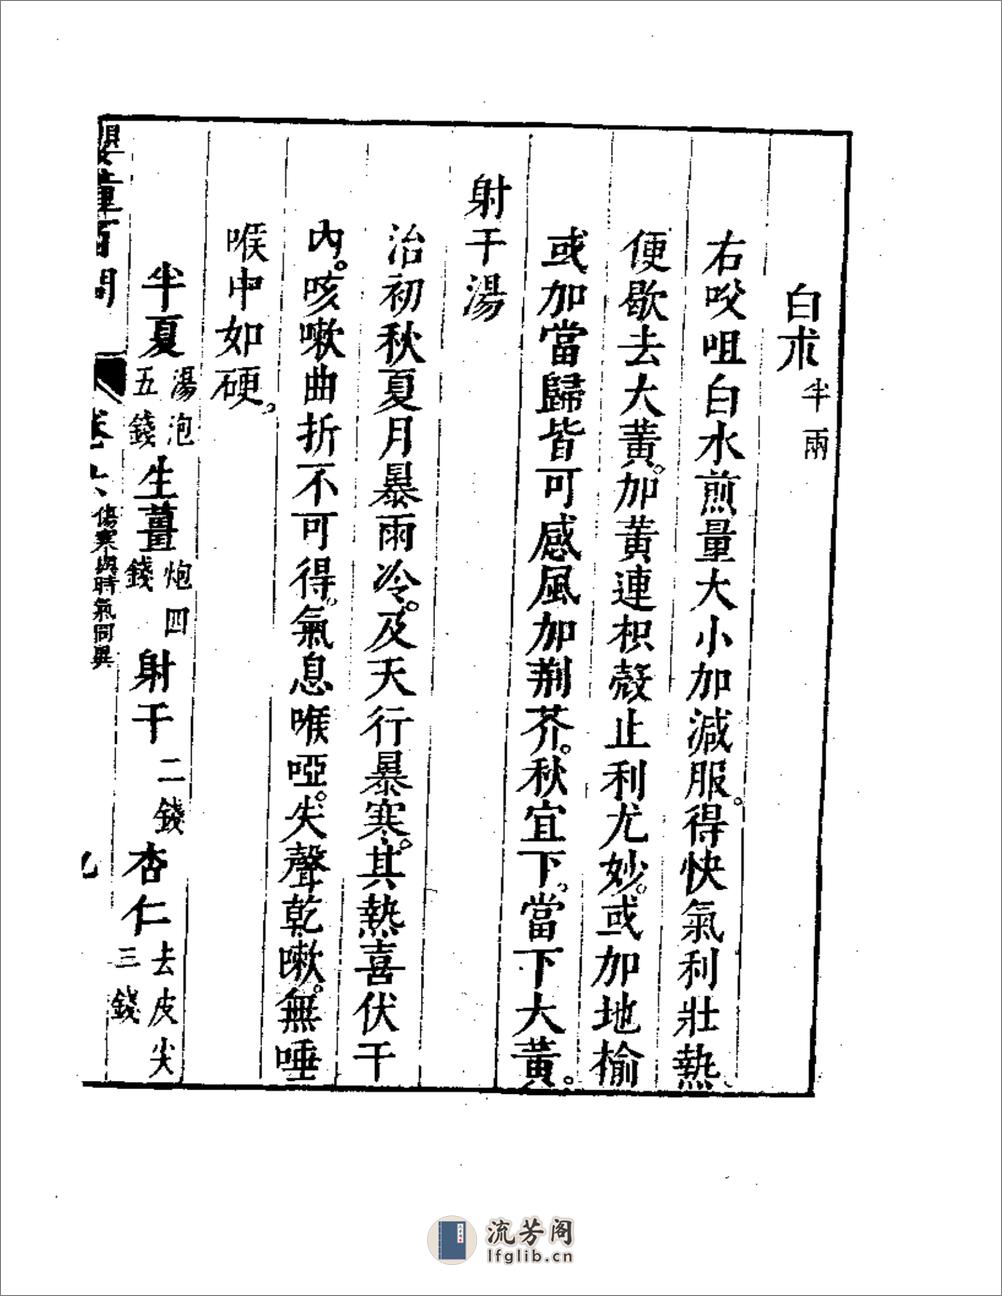 白朮半兩
右㕮咀白水煎量大小加減服。得快氣利壯熱
便歇去大黃。加黃連枳殼止利尤妙。或加地榆
或加當歸皆可感風加荆芥。秋宜下。當下大黃。
射干湯
治初秋夏月暴雨冷。及天行暴寒。其熱喜伏于
內。咳嗽曲折不可得。氣息喉啞。失聲乾嗽。無唾
喉中如硬。
半夏湯泡五錢生薑炮四錢射干二錢杏仁去皮尖三錢
嬰童百問 卷六 傷寒與時氣同異 九
流芳阁
lfglib.cn